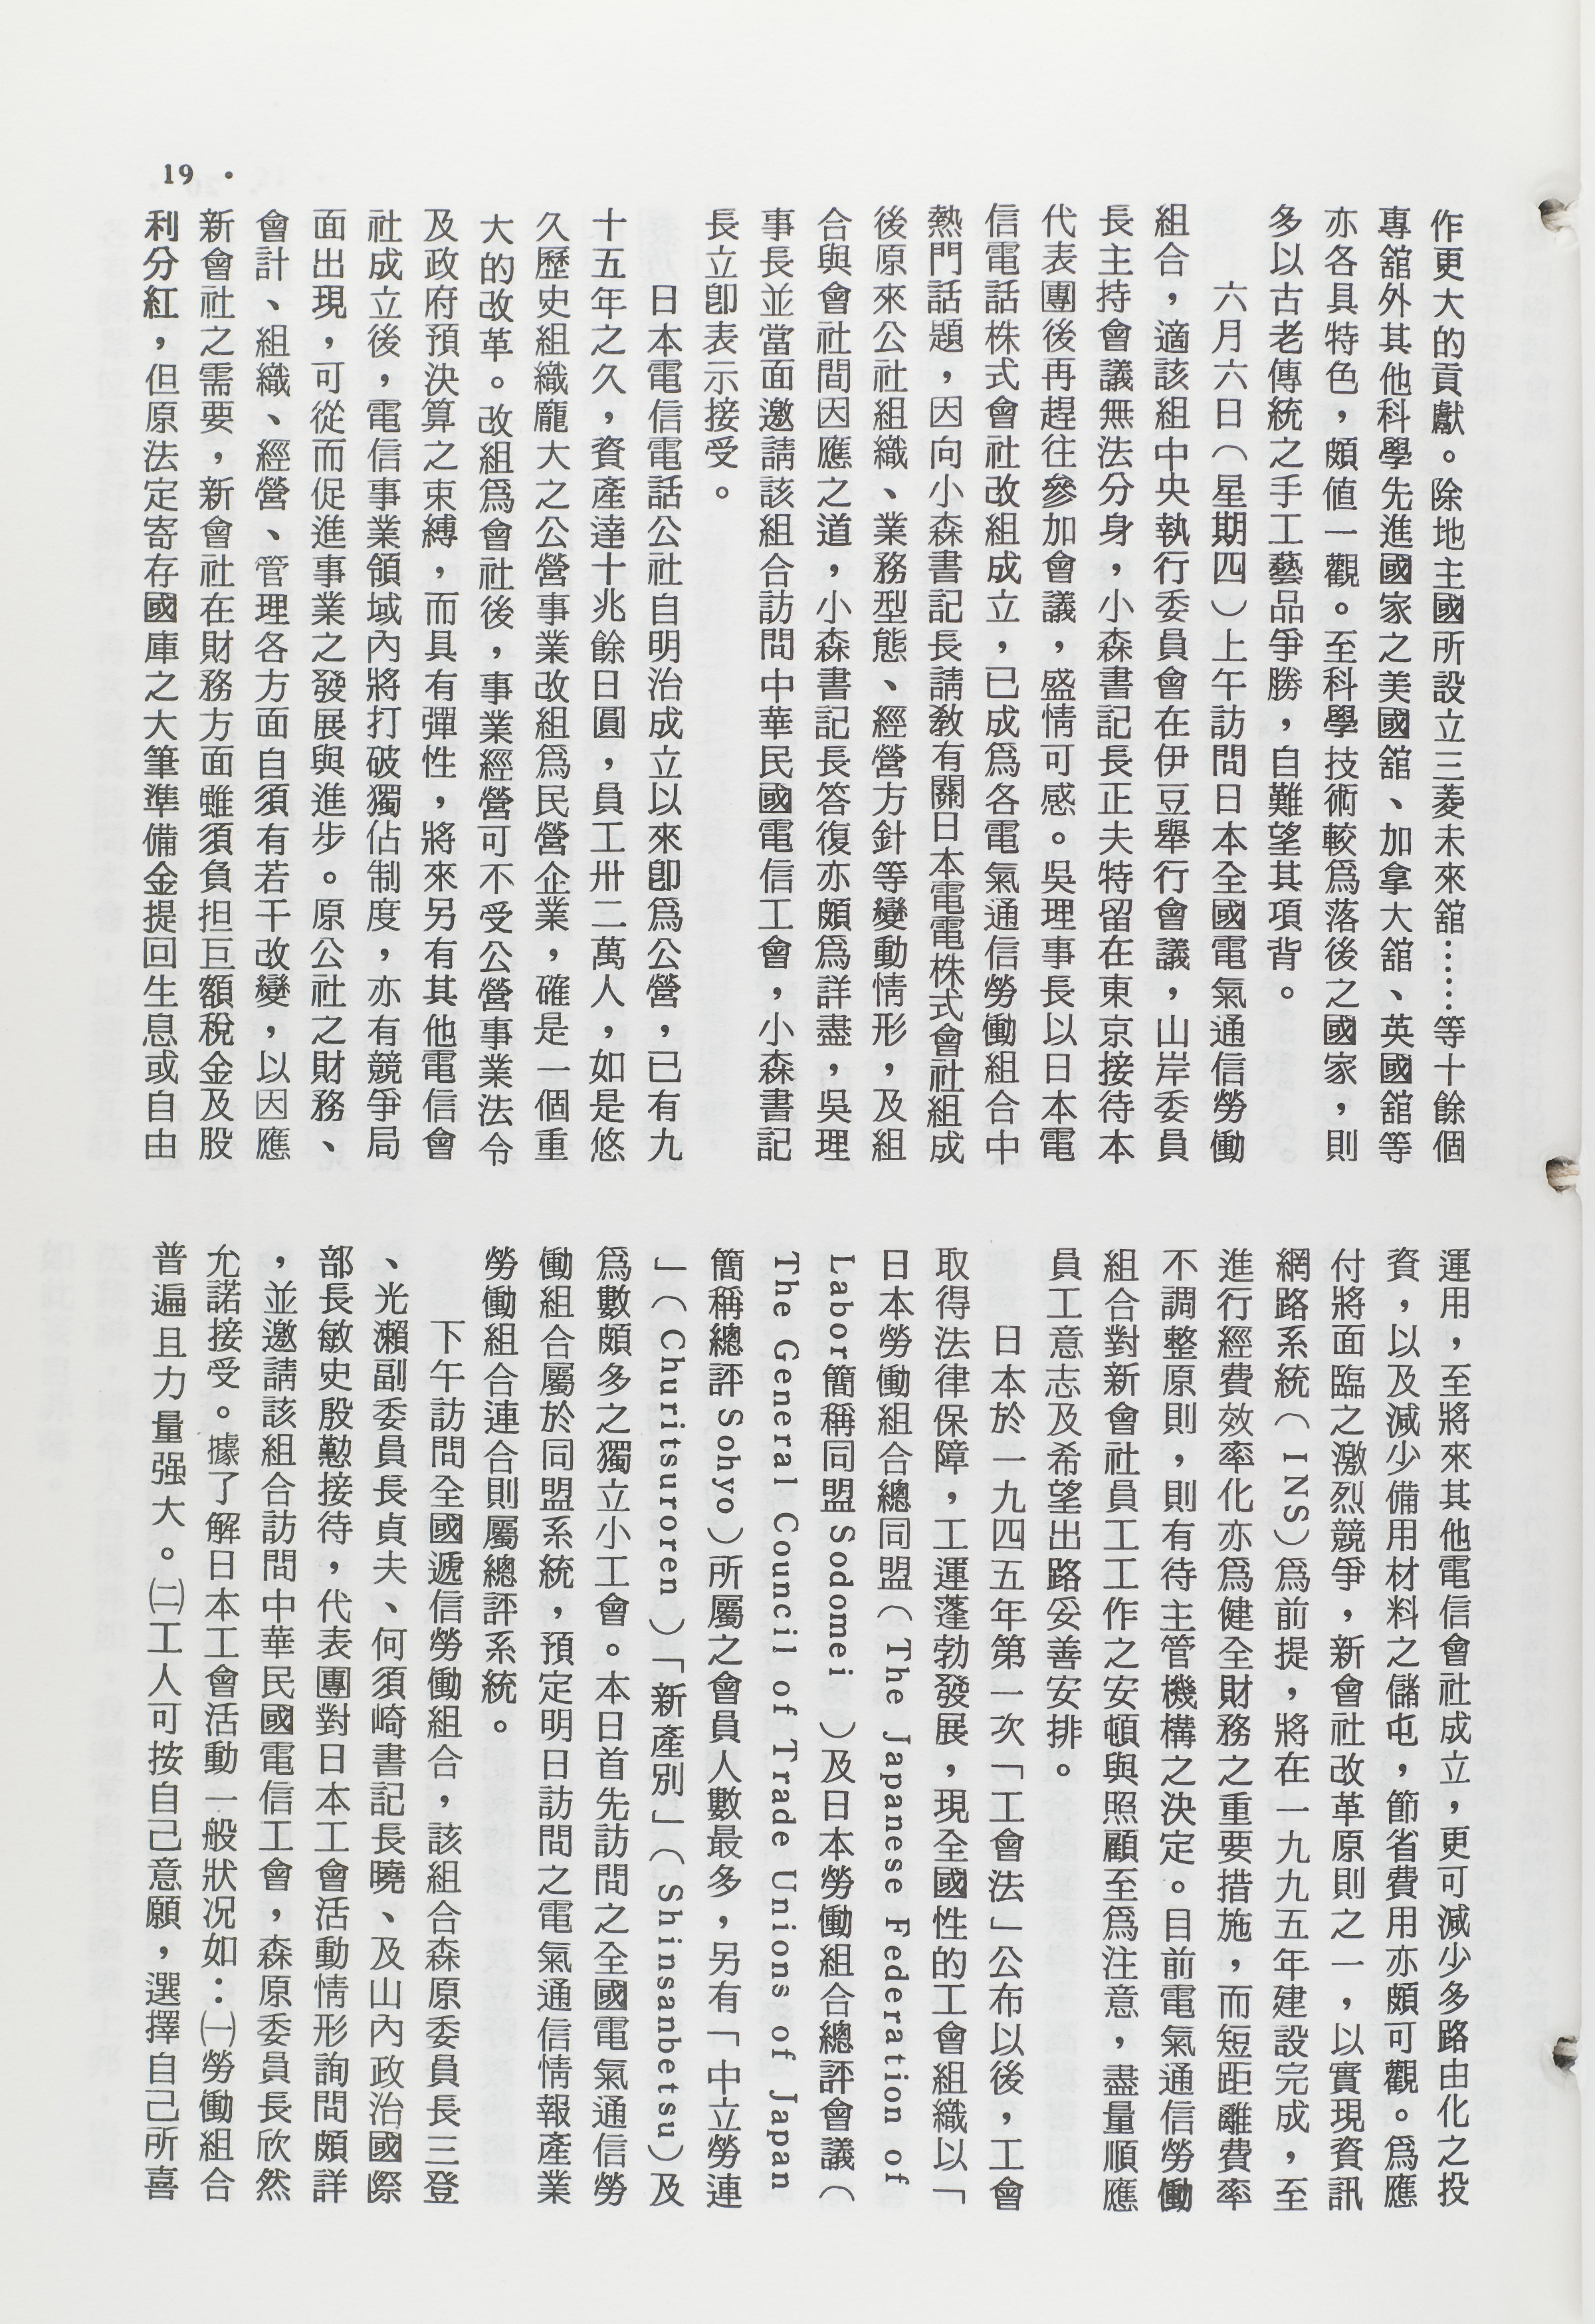 作更大的貢獻。除地主國所設立三菱未來舘……等十餘個
專舘外其他科學先進國家之美國舘、加拿大舘、英國舘等
亦各具特色，頗值一觀。至科學技術較爲落後之國家，則
多以古老傳統之手工藝品爭勝，自難望其項背。
六月六日（星期四）上午訪問日本全國電氣通信勞働
組合，適該組中央執行委員會在伊豆舉行會議，山岸委員
長主持會議無法分身，小森書記長正夫特留在東京接待本
代表團後再趕往參加會議，盛情可感。吳理事長以日本電
信電話株式會社改組成立，已成爲各電氣通信勞働組合中
熱門話題，因向小森書記長請敎有關日本電電株式會社組成
後原來公社組織、業務型態、經營方針等變動情形，及組
合與會社間因應之道，小森書記長答復亦頗爲詳盡，吳理
事長並當面邀請該組合訪問中華民國電信工會，小森書記
長立卽表示接受。
日本電信電話公社自明治成立以來卽爲公營，已有九
十五年之久，資產達十兆餘日圓，員工卅二萬人，如是悠
久歷史組織龐大之公營事業改組爲民營企業，確是一個重
大的改革。改組爲會社後，事業經營可不受公營事業法令
及政府預決算之束縛，而具有彈性，將來另有其他電信會
社成立後，電信事業領域內將打破獨佔制度，亦有競爭局
面出現，可從而促進事業之發展與進步。原公社之財務、
會計、組織、經營、管理各方面自須有若干改變，以因應
新會社之需要，新會社在財務方面雖須負担巨額稅金及股
利分紅，但原法定寄存國庫之大筆準備金提回生息或自由
運用，至將來其他電信會社成立，更可減少多路由化之投
資，以及減少備用材料之儲屯，節省費用亦頗可觀。爲應
付將面臨之激烈競爭，新會社改革原則之一，以實現資訊
網路系統（INS）爲前提，將在一九九五年建設完成，至
進行經費效率化亦爲健全財務之重要措施，而短距離費率
不調整原則，則有待主管機構之決定。目前電氣通信勞働
組合對新會社員工工作之安頓與照顧至爲注意，盡量順應
員工意志及希望出路妥善安排。
日本於一九四五年第一次「工會法」公布以後，工會
取得法律保障，工運蓬勃發展，現全國性的工會組織以「
日本勞働組合總同盟（The Japanese Federation of
Labor簡稱同盟Sodomei）及日本勞働組合總評會議（
The General Council of Trade Unions of Japan
簡稱總評Sohyo）所屬之會員人數最多，另有「中立勞連
」（Churitsuroren）「新產別」（Shinsanbetsu）及
爲數頗多之獨立小工會。本日首先訪問之全國電氣通信勞
働組合屬於同盟系統，預定明日訪問之電氣通信情報產業
勞働組合連合則屬總評系統。
下午訪問全國遞信勞働組合，該組合森原委員長三登
、光瀨副委員長貞夫、何須崎書記長曉、及山內政治國際
部長敏史殷懃接待，代表團對日本工會活動情形詢問頗詳
，並邀請該組合訪問中華民國電信工會，森原委員長欣然
允諾接受。據了解日本工會活動一般狀況如：㈠勞働組合
普遍且力量强大。㈡工人可按自己意願，選擇自己所喜
19．